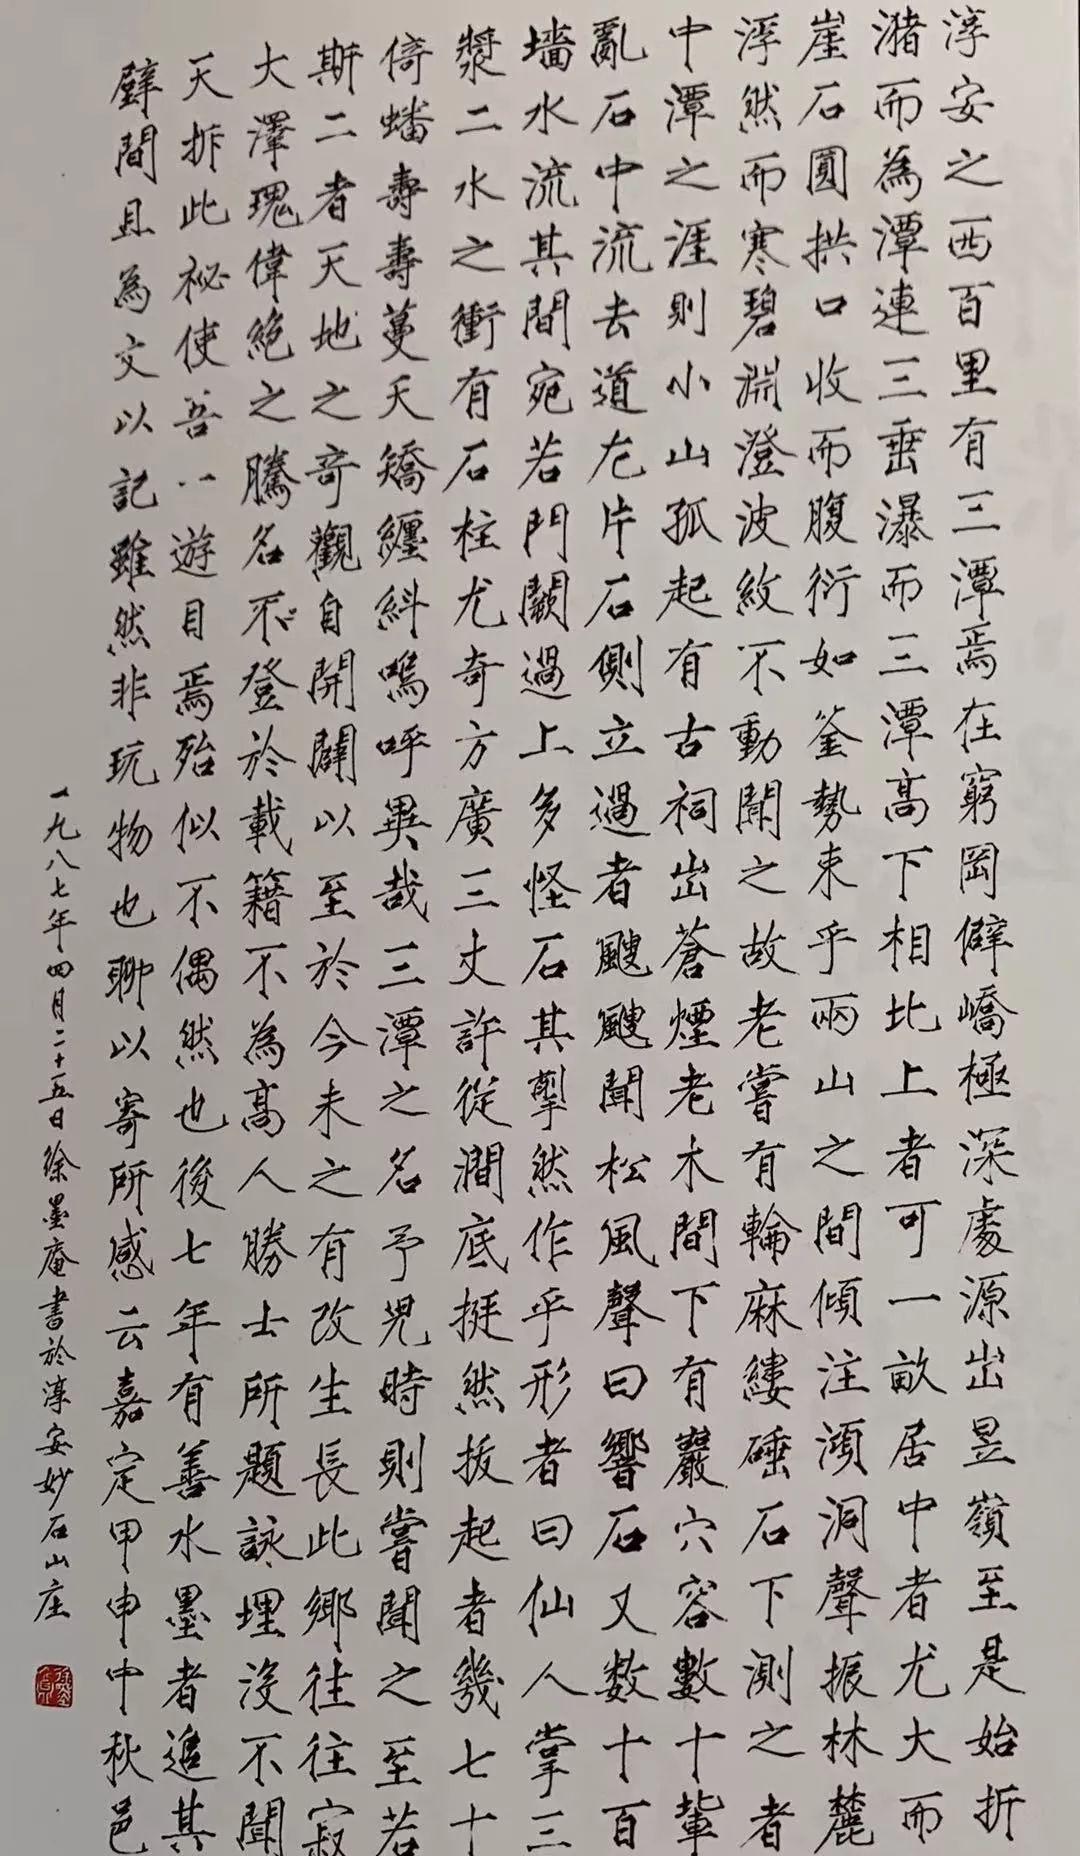 淳安之西百里有三潭焉在窮岡僻嶠極深處源出昱嶺至是始折
潴而為潭連三垂瀑而三潭高下相比上者可一畝居中者尤大而
崖石圓拱口收而腹衍如釜勢束乎兩山之間傾注澒洞聲振林麓
浮然而寒碧淵澄波紋不動聞之故老嘗有輪麻縷硾石下測之者
中潭之涯則小山孤起有古祠出蒼煙老木間下有巖穴容數十輩
亂石中流去道左片石側立過者颼颼聞松風聲曰響石又数十百
墻水流其間宛若門闕過上多怪石其掣然作乎形者曰仙人掌三
漿二水之衝有石柱尤奇方廣三丈許從澗底挺然拔起者幾七十
倚蟠壽壽蔓夭矯纏糾嗚呼異哉三潭之名予兒時則嘗聞之至若
斯二者天地之奇觀自開闢以至於今未之有改生長此鄉往往寂
大澤瑰偉絶之騰名不登於載籍不為高人勝士所題詠埋沒不聞
天拆此祕使吾一遊目焉殆似不偶然也後七年有善水墨者追其
壁間且為文以記雖然非玩物也聊以寄所感云嘉定甲申中秋邑
一九八七年四月二十五日徐墨庵書於淳安妙石山庄